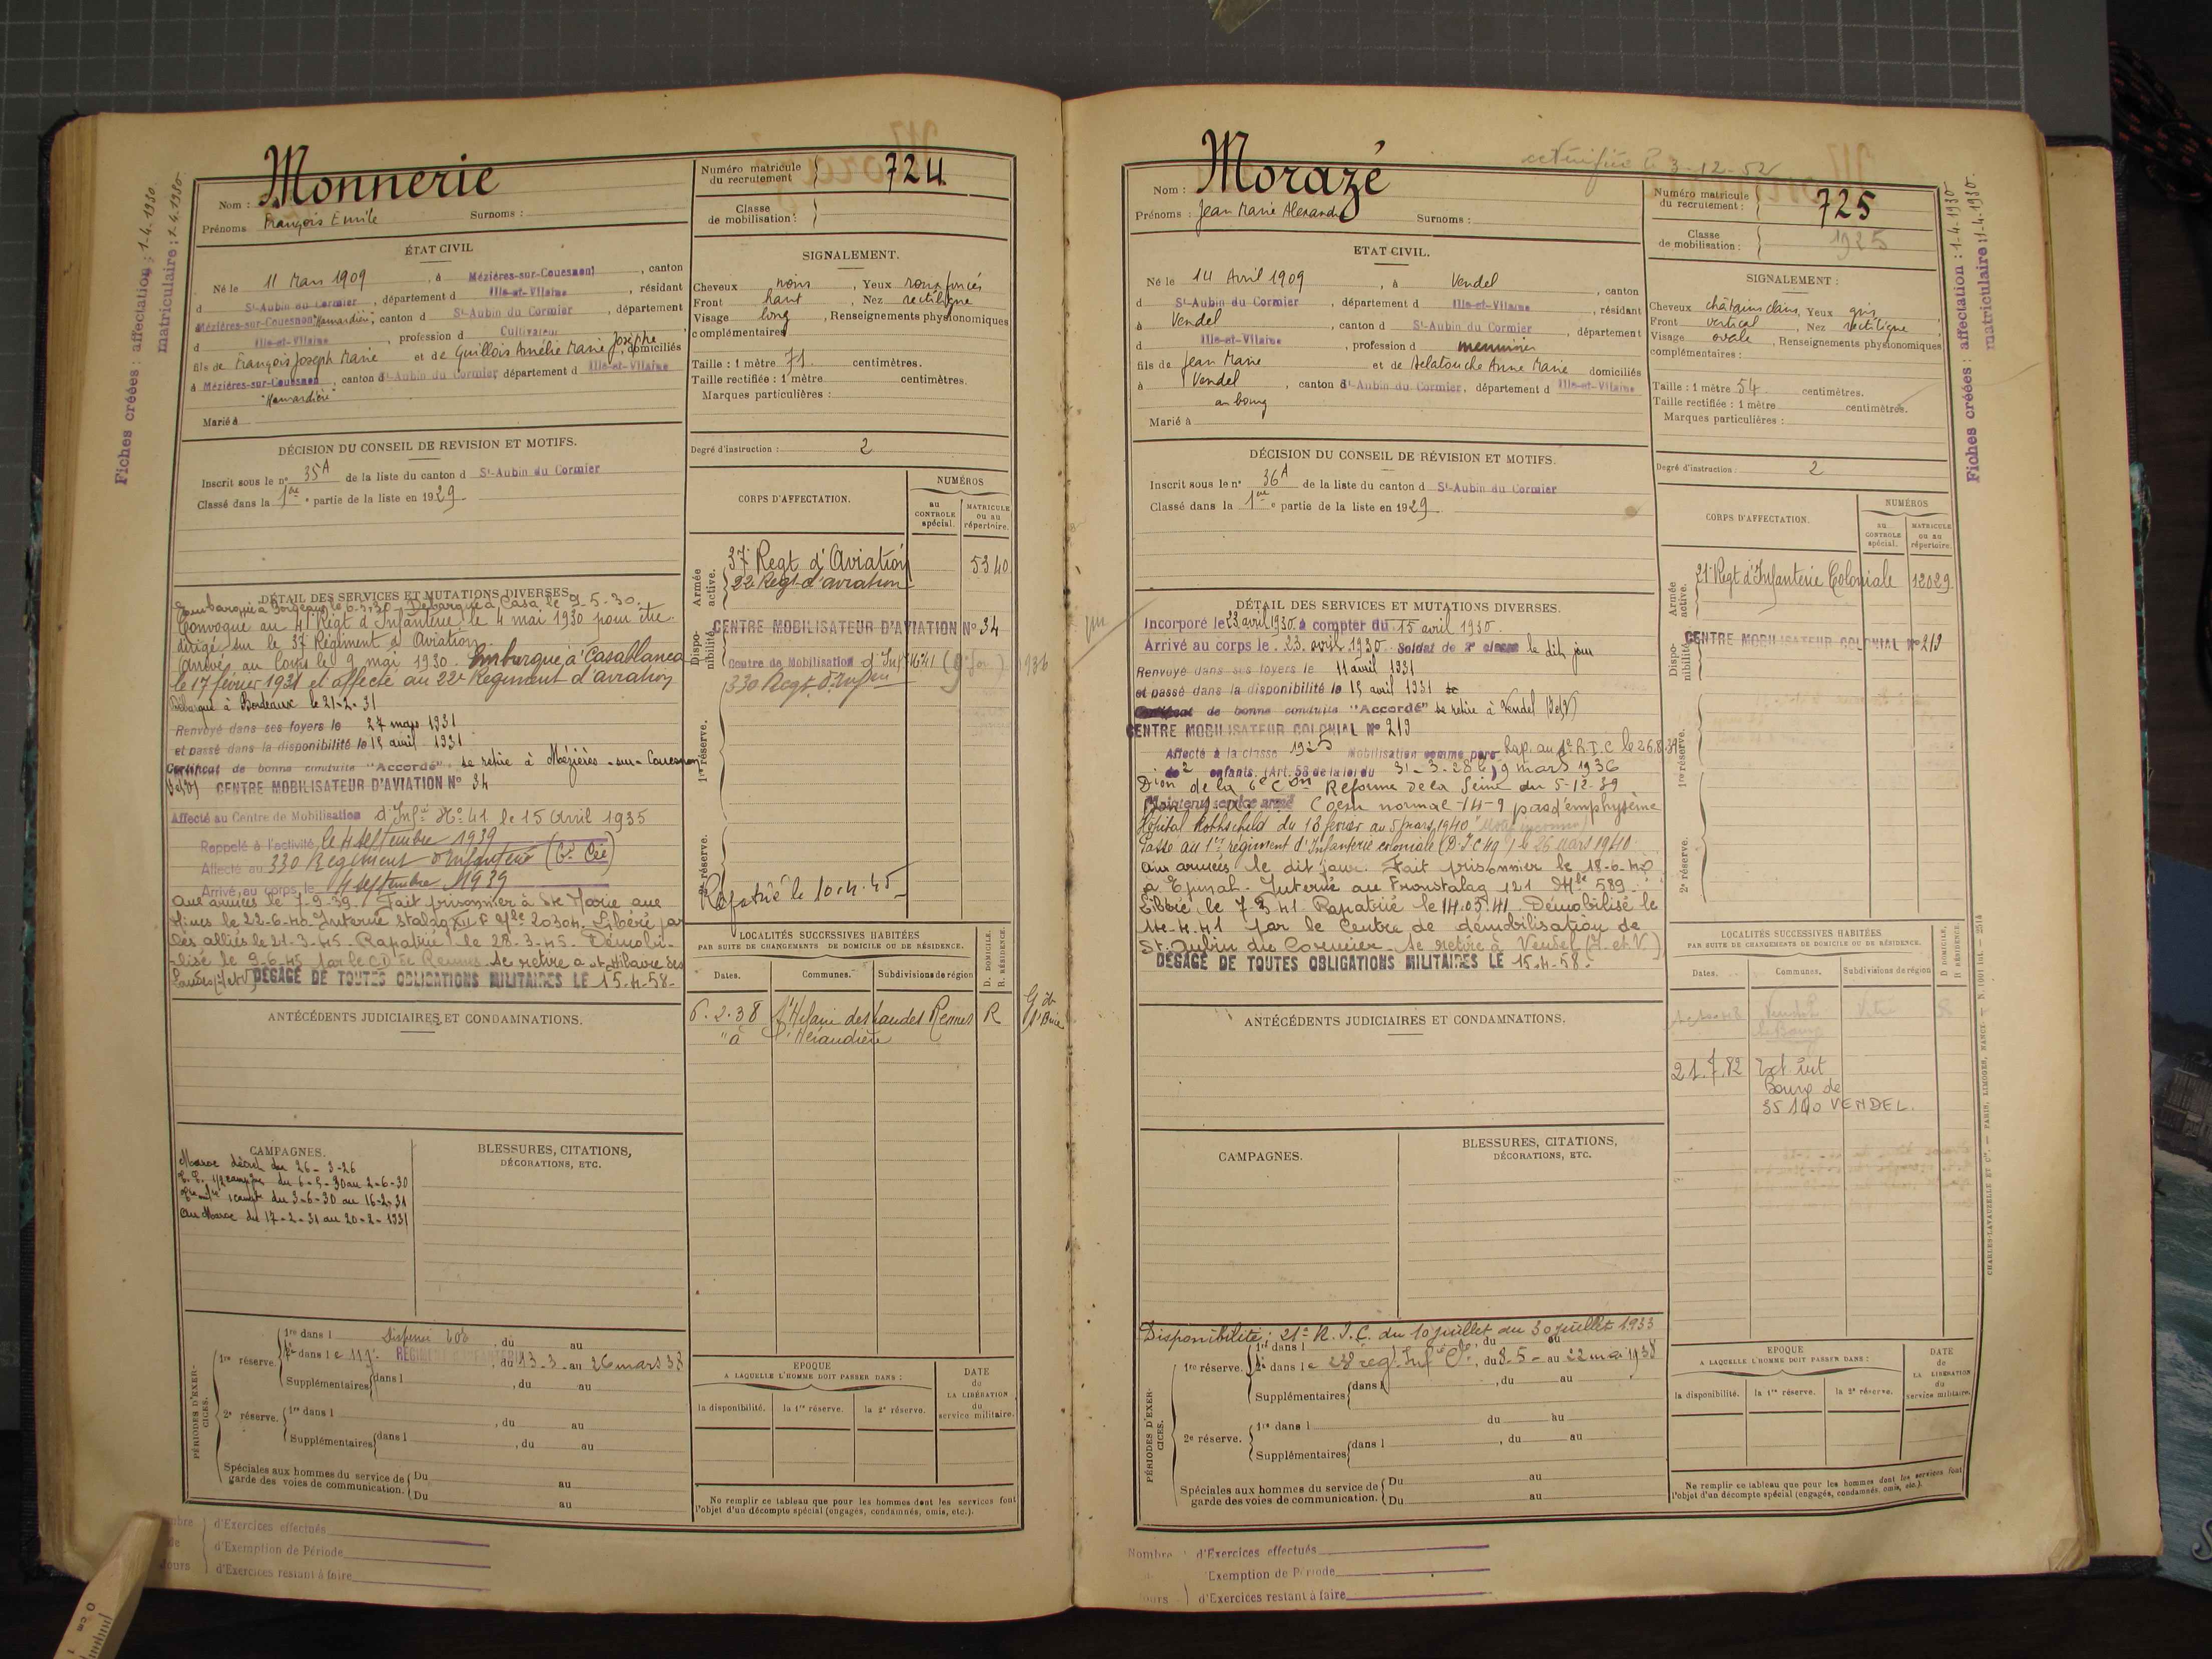 Fiches créées : affectation : 1-4-1930.
matriculaire : 1-4-1930.
Nom : Monnerie
Prénoms François Emile Surnoms :
ÉTAT CIVIL
Né le 11 Mars 1909, à Mézières-sur-Couesnon, canton
d St-Aubin du Cormier, département d Ille-et-Vilaine, résidant
Mézières-sur-Couesnon "Hamardière", canton d St-Aubin du Cormier, département
d Ille-et-Vilaine, profession d Cultivateur
fils de François Joseph Marie et de Guillois Amélie Marie Josèphe, domiciliés
à Mézières-sur-Couesnon, canton d St-Aubin du Cormier département d Ille-et-Vilaine
"Hamardière"
Marié à
DÉCISION DU CONSEIL DE REVISION ET MOTIFS.
Inscrit sous le n° 35A de la liste du canton d St-Aubin du Cormier
Classé dans la 1ère partie de la liste en 1929
DÉTAIL DES SERVICES ET MUTATIONS DIVERSES
Embarqué à Bordeaux le 6-5-30. Débarqué à Casa le 9-5-30.
Convoqué au 41 Régt d'Infanterie le 4 mai 1930 pour être
dirigé sur le 37 Régiment d'Aviation.
Arrivé au Corps le 9 mai 1930. Embarqué à Casablanca
le 17 février 1931 et affecté au 22e Régiment d'aviation
Débarqué à Bordeaux le 21-2-31
Renvoyé dans ses foyers le 27 mars 1931
et passé dans la disponibilité le 15 avril 1931
Certificat de bonne conduite "Accordé". se retire à Mézières-sur-Couesnon
(I et V) CENTRE MOBILISATEUR D'AVIATION N° 34
Affecté au Centre de Mobilisation d'Infie N° 41 le 15 Avril 1935
Rappelé à l'activité le 4 septembre 1939
Affecté au 330 Régiment d'Infanterie (6e Cie)
Arrivé au corps le 4 septembre 1939
Aux armées le 7-9-39. Fait prisonnier à Ste Marie aux
Mines le 22-6-40 Interné Stalag XII F Mle 20304. Libéré par
les alliés le 21-3-45. Rapatrié le 28-3-45. Démobi-
lisé le 9-6-45 par le CD de Rennes. Se retire à St Hilaire des
Landes (I et V) DÉGAGÉ DE TOUTES OBLIGATIONS MILITAIRES LE 15-4-58-
ANTÉCÉDENTS JUDICIAIRES ET CONDAMNATIONS.
CAMPAGNES.
Maroc décret du 26-3-26
1/2 campgne du 6-5-30 au 2-6-30
1 campe du 3-6-30 au 16-2-31
au Maroc du 17-2-31 au 20-2-1931
BLESSURES, CITATIONS,
DÉCORATIONS, ETC.
PÉRIODES D'EXER-
CICES.
1re réserve. 1re dans l Dispensé, du au
2e dans l e 117e RÉGIMENT D'INFANTERIE, du 13-3- au 26 mars 38
Supplémentaires dans l, du au
2e réserve. 1re dans l, du au
Supplémentaires dans l, du au
Spéciales aux hommes du service de Du au
garde des voies de communication. Du au
Nombre d'Exercices effectués
de d'Exemption de Période
Jours d'Exercices restant à faire
Numéro matricule
du recrutement 724
Classe
de mobilisation :
SIGNALEMENT.
Cheveux noirs, Yeux roux foncés
Front haut, Nez rectiligne
Visage long, Renseignements physionomiques
complémentaires
Taille : 1 mètre 71 centimètres.
Taille rectifiée : 1 mètre centimètres.
Marques particulières :
Degré d'instruction : 2
CORPS D'AFFECTATION.
NUMÉROS
au CONTROLE spécial.
MATRICULE ou au répertoire.
Armée active.
37 Regt d'Aviation 5340
22e Regt d'aviation
Dispo-
nibilité.
CENTRE MOBILISATEUR D'AVIATION N° 34
Centre de Mobilisation d'Inf N° 41 1936
330 Regt d'Infie
1re réserve.
2e réserve.
Rapatrié le 10.4.45
LOCALITÉS SUCCESSIVES HABITÉES
PAR SUITE DE CHANGEMENTS DE DOMICILE OU DE RÉSIDENCE.
D. DOMICILE.
R. RÉSIDENCE.
Dates. Communes. Subdivisions de région
6.2.38 St Hilaire des Landes Rennes R
"à l'Hérandière
EPOQUE
A LAQUELLE L'HOMME DOIT PASSER DANS :
DATE
de
LA LIBÉRATION
du
service militaire.
la disponibilité. la 1re réserve. la 2e réserve.
Ne remplir ce tableau que pour les hommes dont les services font
l'objet d'un décompte spécial (engagés, condamnés, omis, etc.).
rectifiée le 3-12-52
Nom : Morazé
Prénoms : Jean Marie Alexandre Surnoms :
ETAT CIVIL.
Né le 14 Avril 1909, à Vendel, canton
d St-Aubin du Cormier, département d Ille-et-Vilaine, résidant
à Vendel, canton d St-Aubin du Cormier, département
d Ille-et-Vilaine, profession d menuisier
fils de Jean Marie et de Delatouche Anne Marie domiciliés
à Vendel, canton d St-Aubin du Cormier, département d Ille-et-Vilaine
au bourg
Marié à
DÉCISION DU CONSEIL DE RÉVISION ET MOTIFS.
Inscrit sous le n° 36A de la liste du canton d St-Aubin du Cormier
Classé dans la 1ère partie de la liste en 1929
DÉTAIL DES SERVICES ET MUTATIONS DIVERSES.
Incorporé le 23 avril 1930 à compter du 15 avril 1930.
Arrivé au corps le 23 avril 1930. Soldat de 2e classe le dit jour
Renvoyé dans ses foyers le 11 avril 1931
et passé dans la disponibilité le 15 avril 1931
Certificat de bonne conduite "Accordé" se retire à Vendel (I et V)
CENTRE MOBILISATEUR COLONIAL N° 213
Affecté à la classe 1925 Mobilisation comme père Rap. au 1er R.I.C le 26.8.39
de 2 enfants. (Art. 58 de la loi du 31-3-28 le 9 mars 1936
Dion de la 6e Con Réforme de la Seine du 5-12-39
Maintenu service armé Coeur normal-14-9 pas d'emphysème
Hopital Rothschild du 13 fevrier au 5 mars 1940
Passé au 1er régiment d'Infanterie coloniale le 26 mars 1940.
aux armées le dit jour. Fait prisonnier le 18-6-40
à Epinal. Interné au Fronstalag 121 Mle 589
Libéré le 7-3-41 Rapatrié le 14.03.41. Démobilisé le
14-4-41 par le Centre de démobilisation de
St. Aubin du Cormier. Se retire à Vendel (I. et V)
DÉGAGÉ DE TOUTES OBLIGATIONS MILITAIRES LE 15-4-58-
ANTÉCÉDENTS JUDICIAIRES ET CONDAMNATIONS.
CAMPAGNES.
BLESSURES, CITATIONS,
DÉCORATIONS, ETC.
Disponibilité ; 21e R.I.C. du 10 juillet au 30 juillet 1933
PÉRIODES D'EXER-
CICES.
1re réserve. 1re dans l du au
2e dans l e 23e rég. Inf Cle, du 2-5- au 22 mai 1938
Supplémentaires dans l, du au
2e réserve. 1re dans l du au
Supplémentaires dans l, du au
Spéciales aux hommes du service de Du au
garde des voies de communication. Du au
Nombre d'Exercices effectués
de Exemption de Période
Jours d'Exercices restant à faire
Numéro matricule
du recrutement : 725
Classe
de mobilisation : 1925
SIGNALEMENT :
Cheveux châtains clairs, Yeux gris
Front vertical, Nez rectiligne
Visage ovale, Renseignements physionomiques
complémentaires :
Taille : 1 mètre 54 centimètres.
Taille rectifiée : 1 mètre centimètres.
Marques particulières :
Degré d'instruction : 2
CORPS D'AFFECTATION.
NUMÉROS
au CONTROLE spécial.
MATRICULE ou au répertoire.
Armée active.
21e Regt d'Infanterie Coloniale 12029
Dispo-
nibilité.
CENTRE MOBILISATEUR COLONIAL N° 213
1re réserve.
2e réserve.
LOCALITÉS SUCCESSIVES HABITÉES
PAR SUITE DE CHANGEMENTS DE DOMICILE OU DE RÉSIDENCE.
D. DOMICILE.
R. RÉSIDENCE.
Dates. Communes. Subdivisions de région
Vendel Vitré R
le Bourg
21.7.82
Bourg de
35140 VENDEL.
EPOQUE
A LAQUELLE L'HOMME DOIT PASSER DANS :
DATE
de
LA LIBÉRATION
du
service militaire.
la disponibilité. la 1re réserve. la 2e réserve.
Ne remplir ce tableau que pour les hommes dont les services font
l'objet d'un décompte spécial (engagés, condamnés, omis, etc.).
Fiches créées : affectation : 1-4-1930
matriculaire : 1-4-1930.
CHARLES-LAVAUZELLE ET Cie. — PARIS, LIMOGES, NANCY.
0 cm 1